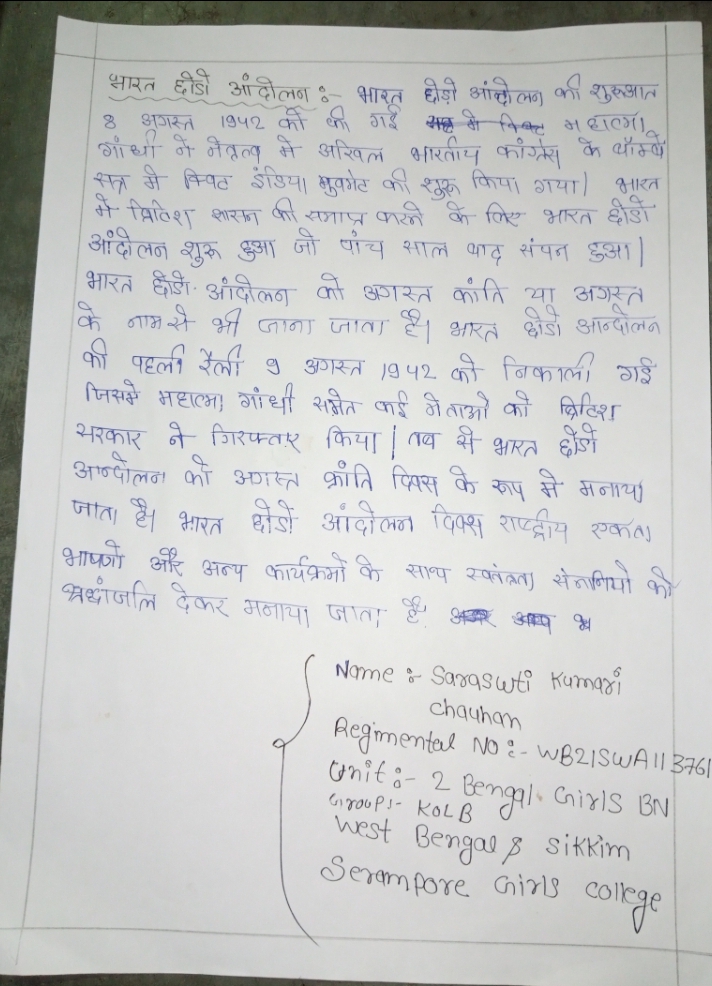 भारत छोडो आंदोलन :- भारत छोड़ो आंदोलन की शुरुआत
8 अगस्त 1942 को की गई महात्मा
गांधी ने नेतृत्व मे अखिल भारतीय कांग्रेस के बॉम्बे
सत्र मे क्विट इंडिया मुवमेंट की शुरू किया गया। भारत
मे ब्रिटिश शासन की समाप्त करने के लिए भारत छोडो
आंदोलन शुरू हुआ जो पांच साल बाद संपन हुआ।
भारत छोडो आंदोलन को अगस्त कांति या अगस्त
के नाम से भी जाना जाता है। भारत छोडो आन्दोलन
की पहली रैली 9 अगस्त 1942 को निकाली गई
जिसमे महात्मा गांधी समेत कई नेताओ को ब्रिटिश
सरकार ने गिरफ्तार किया। तब से भारत छोडो
आन्दोलन को अगस्त क्रांति दिवस के रूप मे मनाया
जाता है। भारत छोडो आंदोलन दिवस राष्ट्रीय एकता
भाषणो और अन्य कार्यक्रमो के साथ स्वतंत्रता सेनानियो को
श्रधांजलि देकर मनाया जाता है.
Name :- Saraswti Kumari
chauhan
Regimental No :- WB21SWA113761
Unit :- 2 Bengal Girls BN
Group :- KOL B
West Bengal & Sikkim
Serampore Girls college